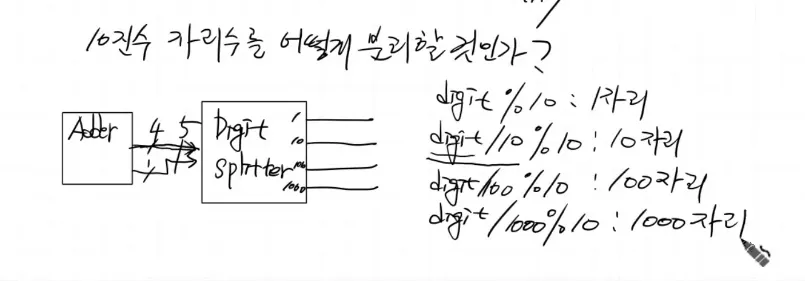 10진수 자리수를 어떻게 분리할 것인가?
digit % 10 : 1자리
digit/10 % 10 : 10자리
digit/100 % 10 : 100자리
digit/1000 % 10 : 1000자리
Adder
4
5
1
13
Digit
splitter
1
10
100
1000